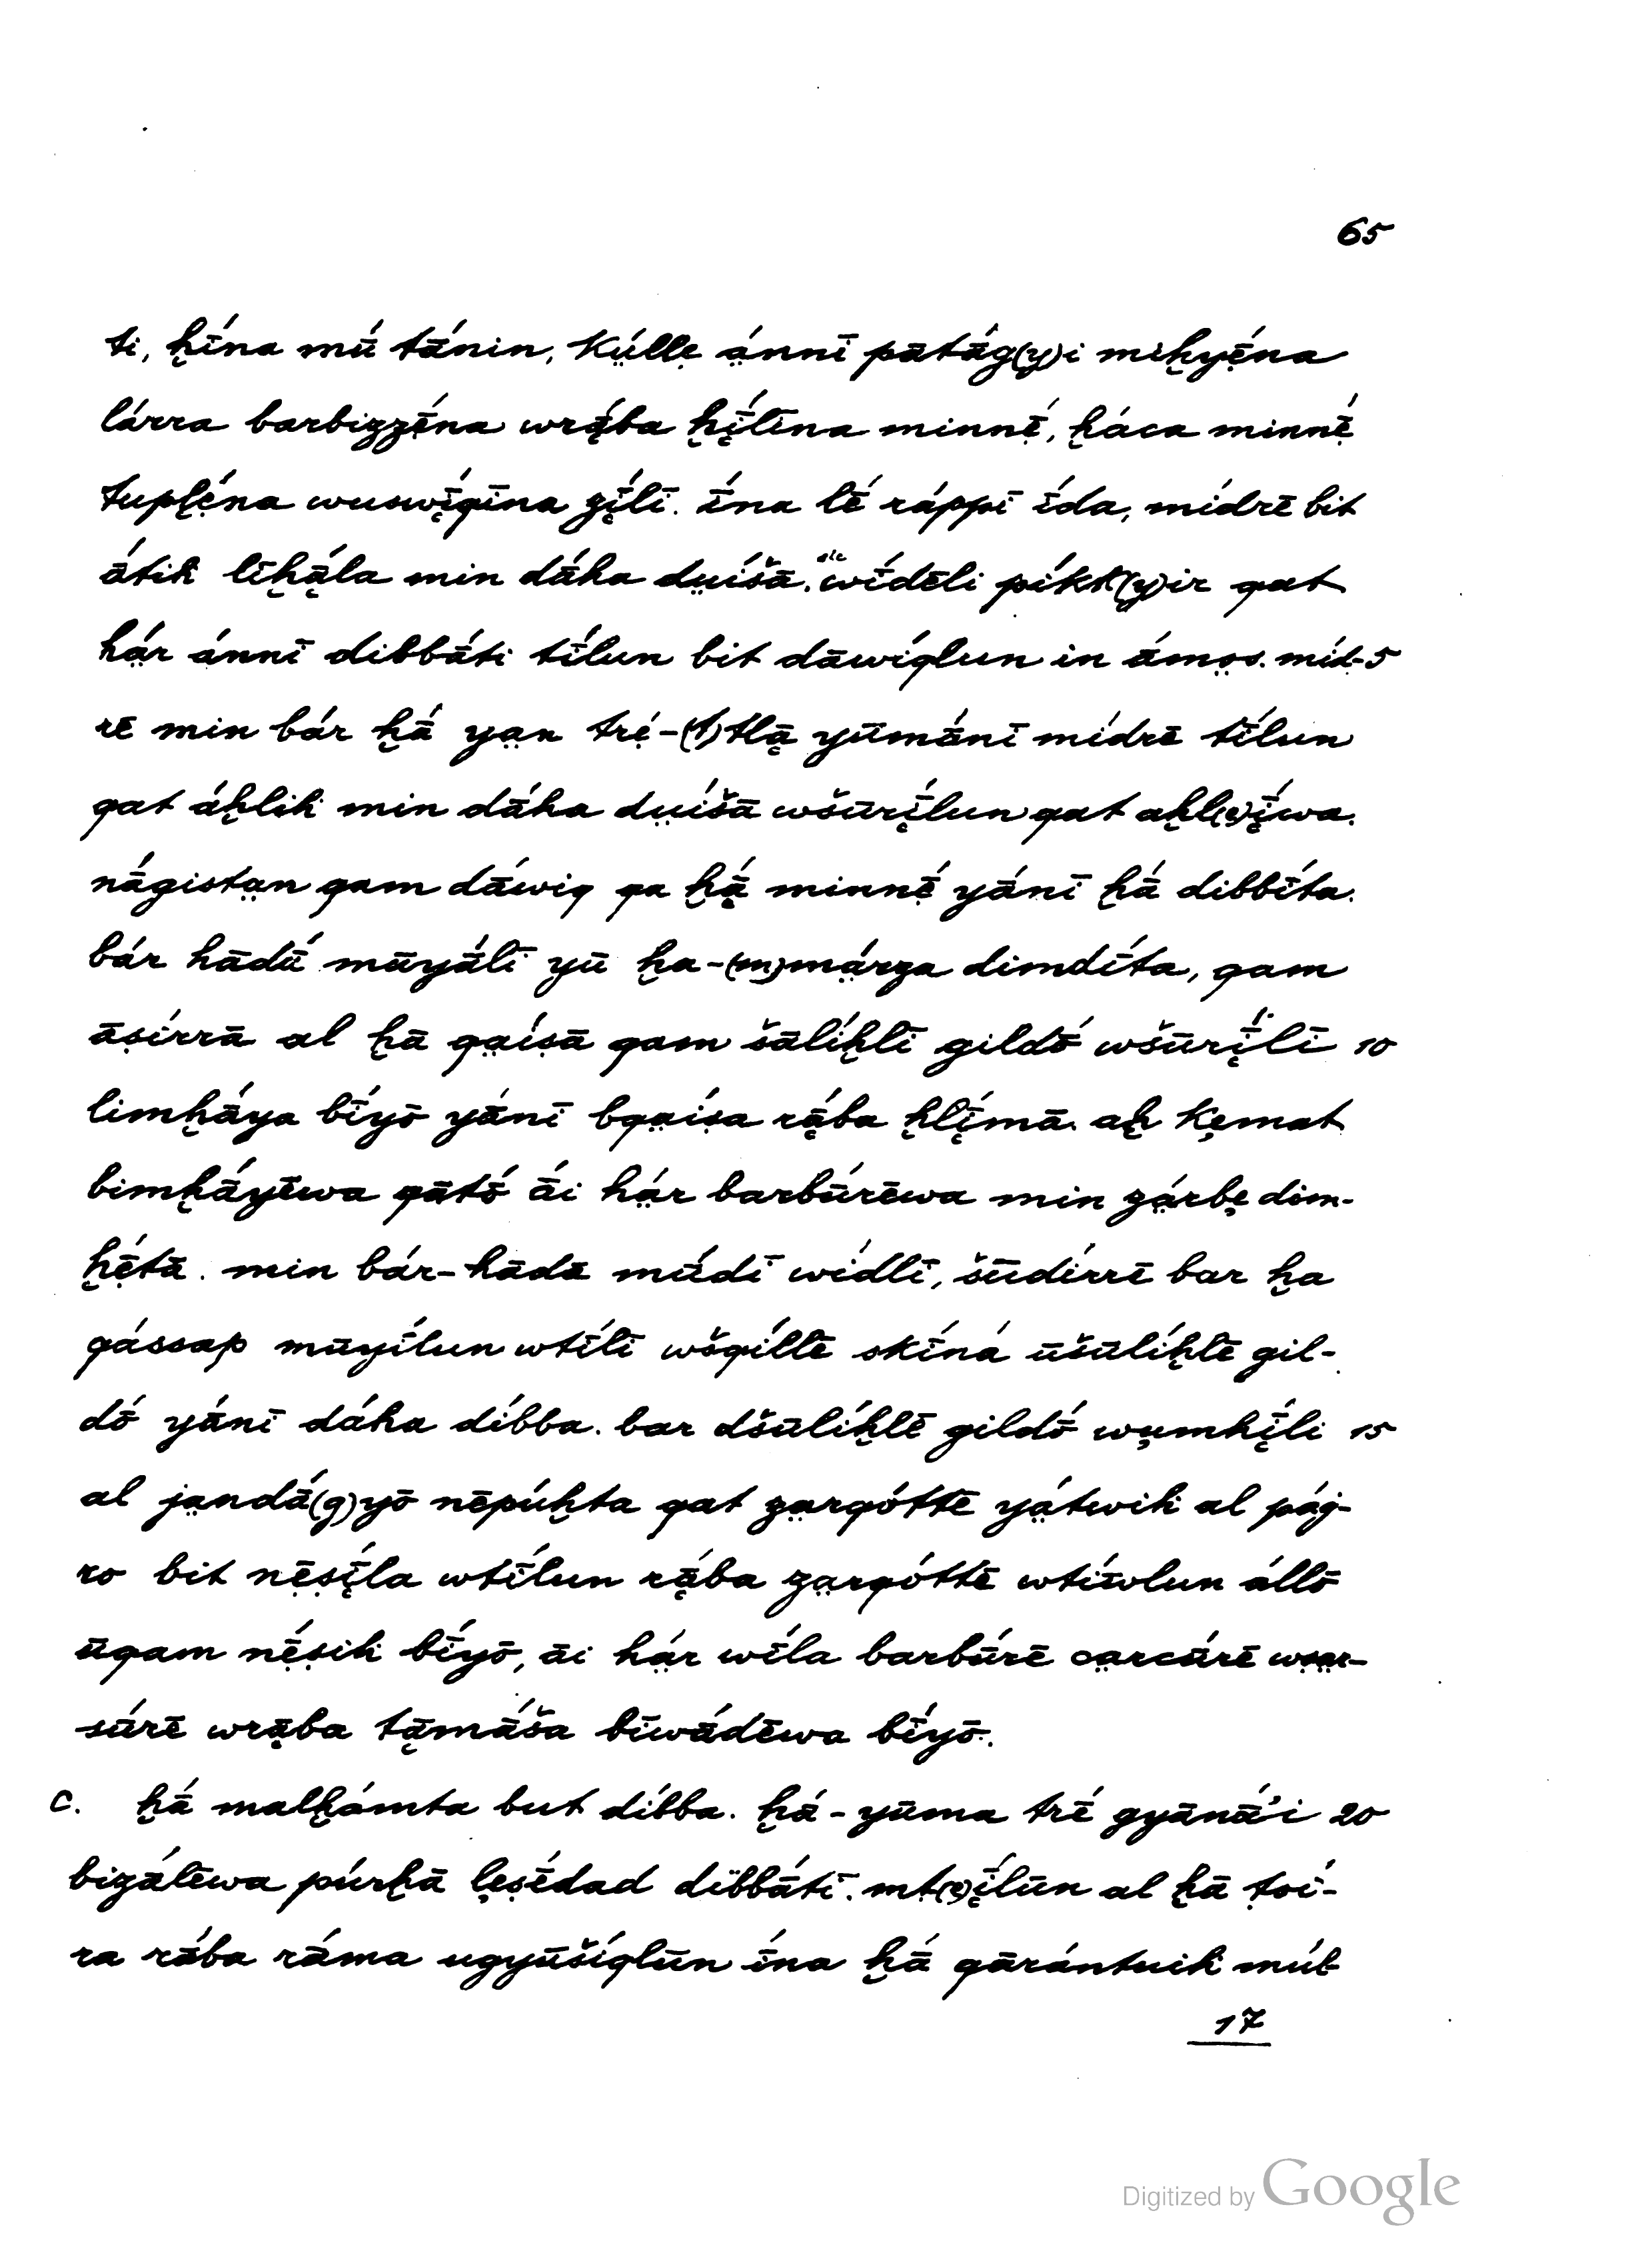 65
ti, ḫī́na mū́ tā́nin, kṳ́llẹ á̤nnī pātā́g(y)i miḫyẹ́na
lárra barbizzḗna wrą̄́ba ḫį̄́līna minnẹ̄́, ḫáca minnẹ̄́
tupḷẹ́na wuswį̄́qīna zį̄́lī. ī́na lḗ ráppī ī́da, mídrē bit
ā́tiḫ līḫą̄́la min dā́ha dṳíšā. wī́dēli píkk(y)ir qat
há̤r ánnī dibbā́ti tī́lun bit dāwíqlun in ā́mo̤s. míd- 5
rē min bár ḫā́ ya̤n trẹ́-(t)tlą̄ yūmā́nī mídrē tī́lun
qat áḫliḫ min dā́ha dṳíšā wšūrį̄́lun qat aḫl(ẹ)į̄́wa.
nāgista̤n qam dā́wiq qa ḫą̄́ minnẹ̄́ yā́nī ḫā́ dibbī́ta.
bár hādū́ mūyā́lī yū ḫa-(m)má̤rza dimdī́ta, qam
āṣírrā al ḫā qa̤íṣā qam šālíḫlī gildṓ wšūrį̄́lī 10
limḫā́ya bī́yō yā́nī bqa̤íṣa rą̄́ba ḫlį̄́mā. aḫ kẹmat
bimḫā́yēwa qātṓ āi há̤r barbū́rēwa min zá̤rbẹ dim-
ḫẹ̄́tā. min bár-hādā mū́dī wídlī, šūdírrē bar ḫa
qássap mūyī́lun wtī́lī wšqíllē skīná ūšūlíḫlē gil-
dṓ yā́nī dā́ha díbba. bar dšūlíḫlē gildṓ wụmhį̄́lī 15
al ja̤ndā́(g)yō nēpúḫta qat za̤rqóttē yá̤twiḫ al pág-
ro bit nẹ̄ṣį̄́la wtī́lun rą̄́ba za̤rqóttē wtī́wlun állō
ūqam nẹ̄́ṣiḫ bī́yō, āi há̤r wī́la barbū́rē ca̤rcū́rē wṣa̤r-
ṣū́rē wrą̄́ba tą̄mā́ša bīwā́dēwa bī́yō.
c. ḫā́ malḫámta but díbba. ḫá-yūma trḗ gyānā́'i 20
bizā́lēwa púrḫā lẹṣḗdad dibbā́tī. mt(ẹ)į̄́lūn al ḫā ṭoí-
ra rā́ba rā́ma ugyūšíqlūn ī́na ḫā́ qārántuiḫ múb
17
Digitized by Google